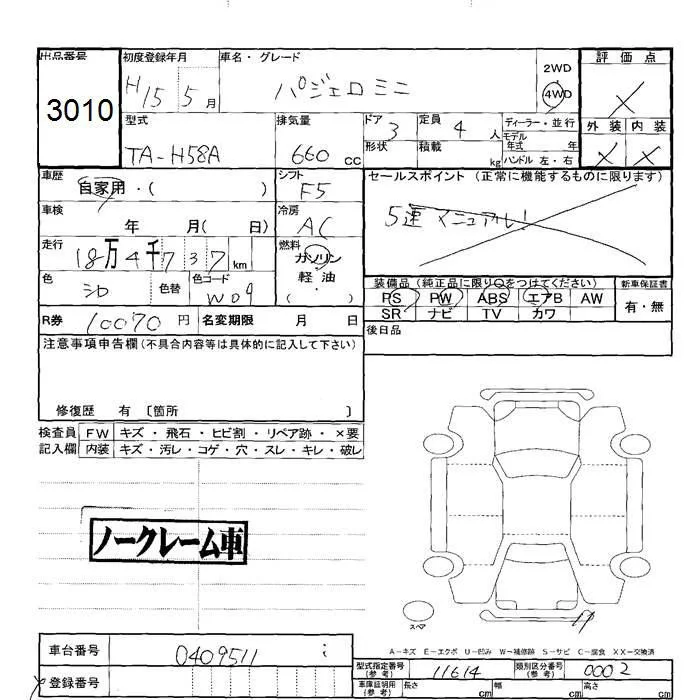 出品番号 3010
初度登録年月 H15 5月
車名・グレード パジェロ ミニ
2WD
4WD
評価点 X
外装 内装
X X
型式 TA-H58A
排気量 660 CC
ドア 3
形状
定員 4 人
積載 kg
ディーラー・並行
モデル年式 年
ハンドル 左・右
車歴 自家用・( )
シフト F5
セールスポイント (正常に機能するものに限ります)
5速 マニュアル!
車検 年 月( 日)
冷房 AC
走行 18万4千737km
燃料 ガソリン
軽・油
( )
色 シロ 色替 色コード W09
装備品 (純正品に限り○をつけてください) 新車保証書
PS PW ABS エアB AW 有・無
SR ナビ TV カワ
R券 10070円 名変期限 月 日
後日品
注意事項申告欄(不具合内容等は具体的に記入して下さい)
修復歴 有 〔箇所 〕
検査員 FW キズ・飛石・ヒビ割・リペア跡・×要
記入欄 内装 キズ・汚レ・コゲ・穴・スレ・キレ・破レ
ノークレーム車
スペア
A-キズ E-エクボ U-凹み W-補修跡 S-サビ C-腐食 XX-交換済
車台番号 0409511
登録番号
型式指定番号(参考) 11614 類別区分番号(参考) 0002
車庫証明用(参考) 長さ cm 幅 cm 高さ cm